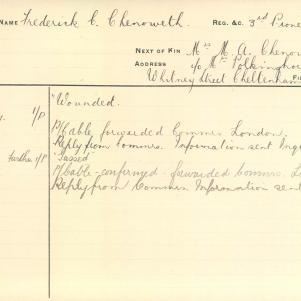 NAME Frederick C. Chenoweth REG. &C. 3rd Pione
NEXT OF KIN Mrs M. A. Cheno
ADDRESS c/o Mrs Polkinghor
Whitney Street Cheltenham
"Wounded.
P/Cable forwarded Commrs. London.
Reply from Commrs. Information sent Inqu
further I/P "Gassed"
P/Cable confirmed forwarded Commrs. Lo
Reply from Commrs Information sent